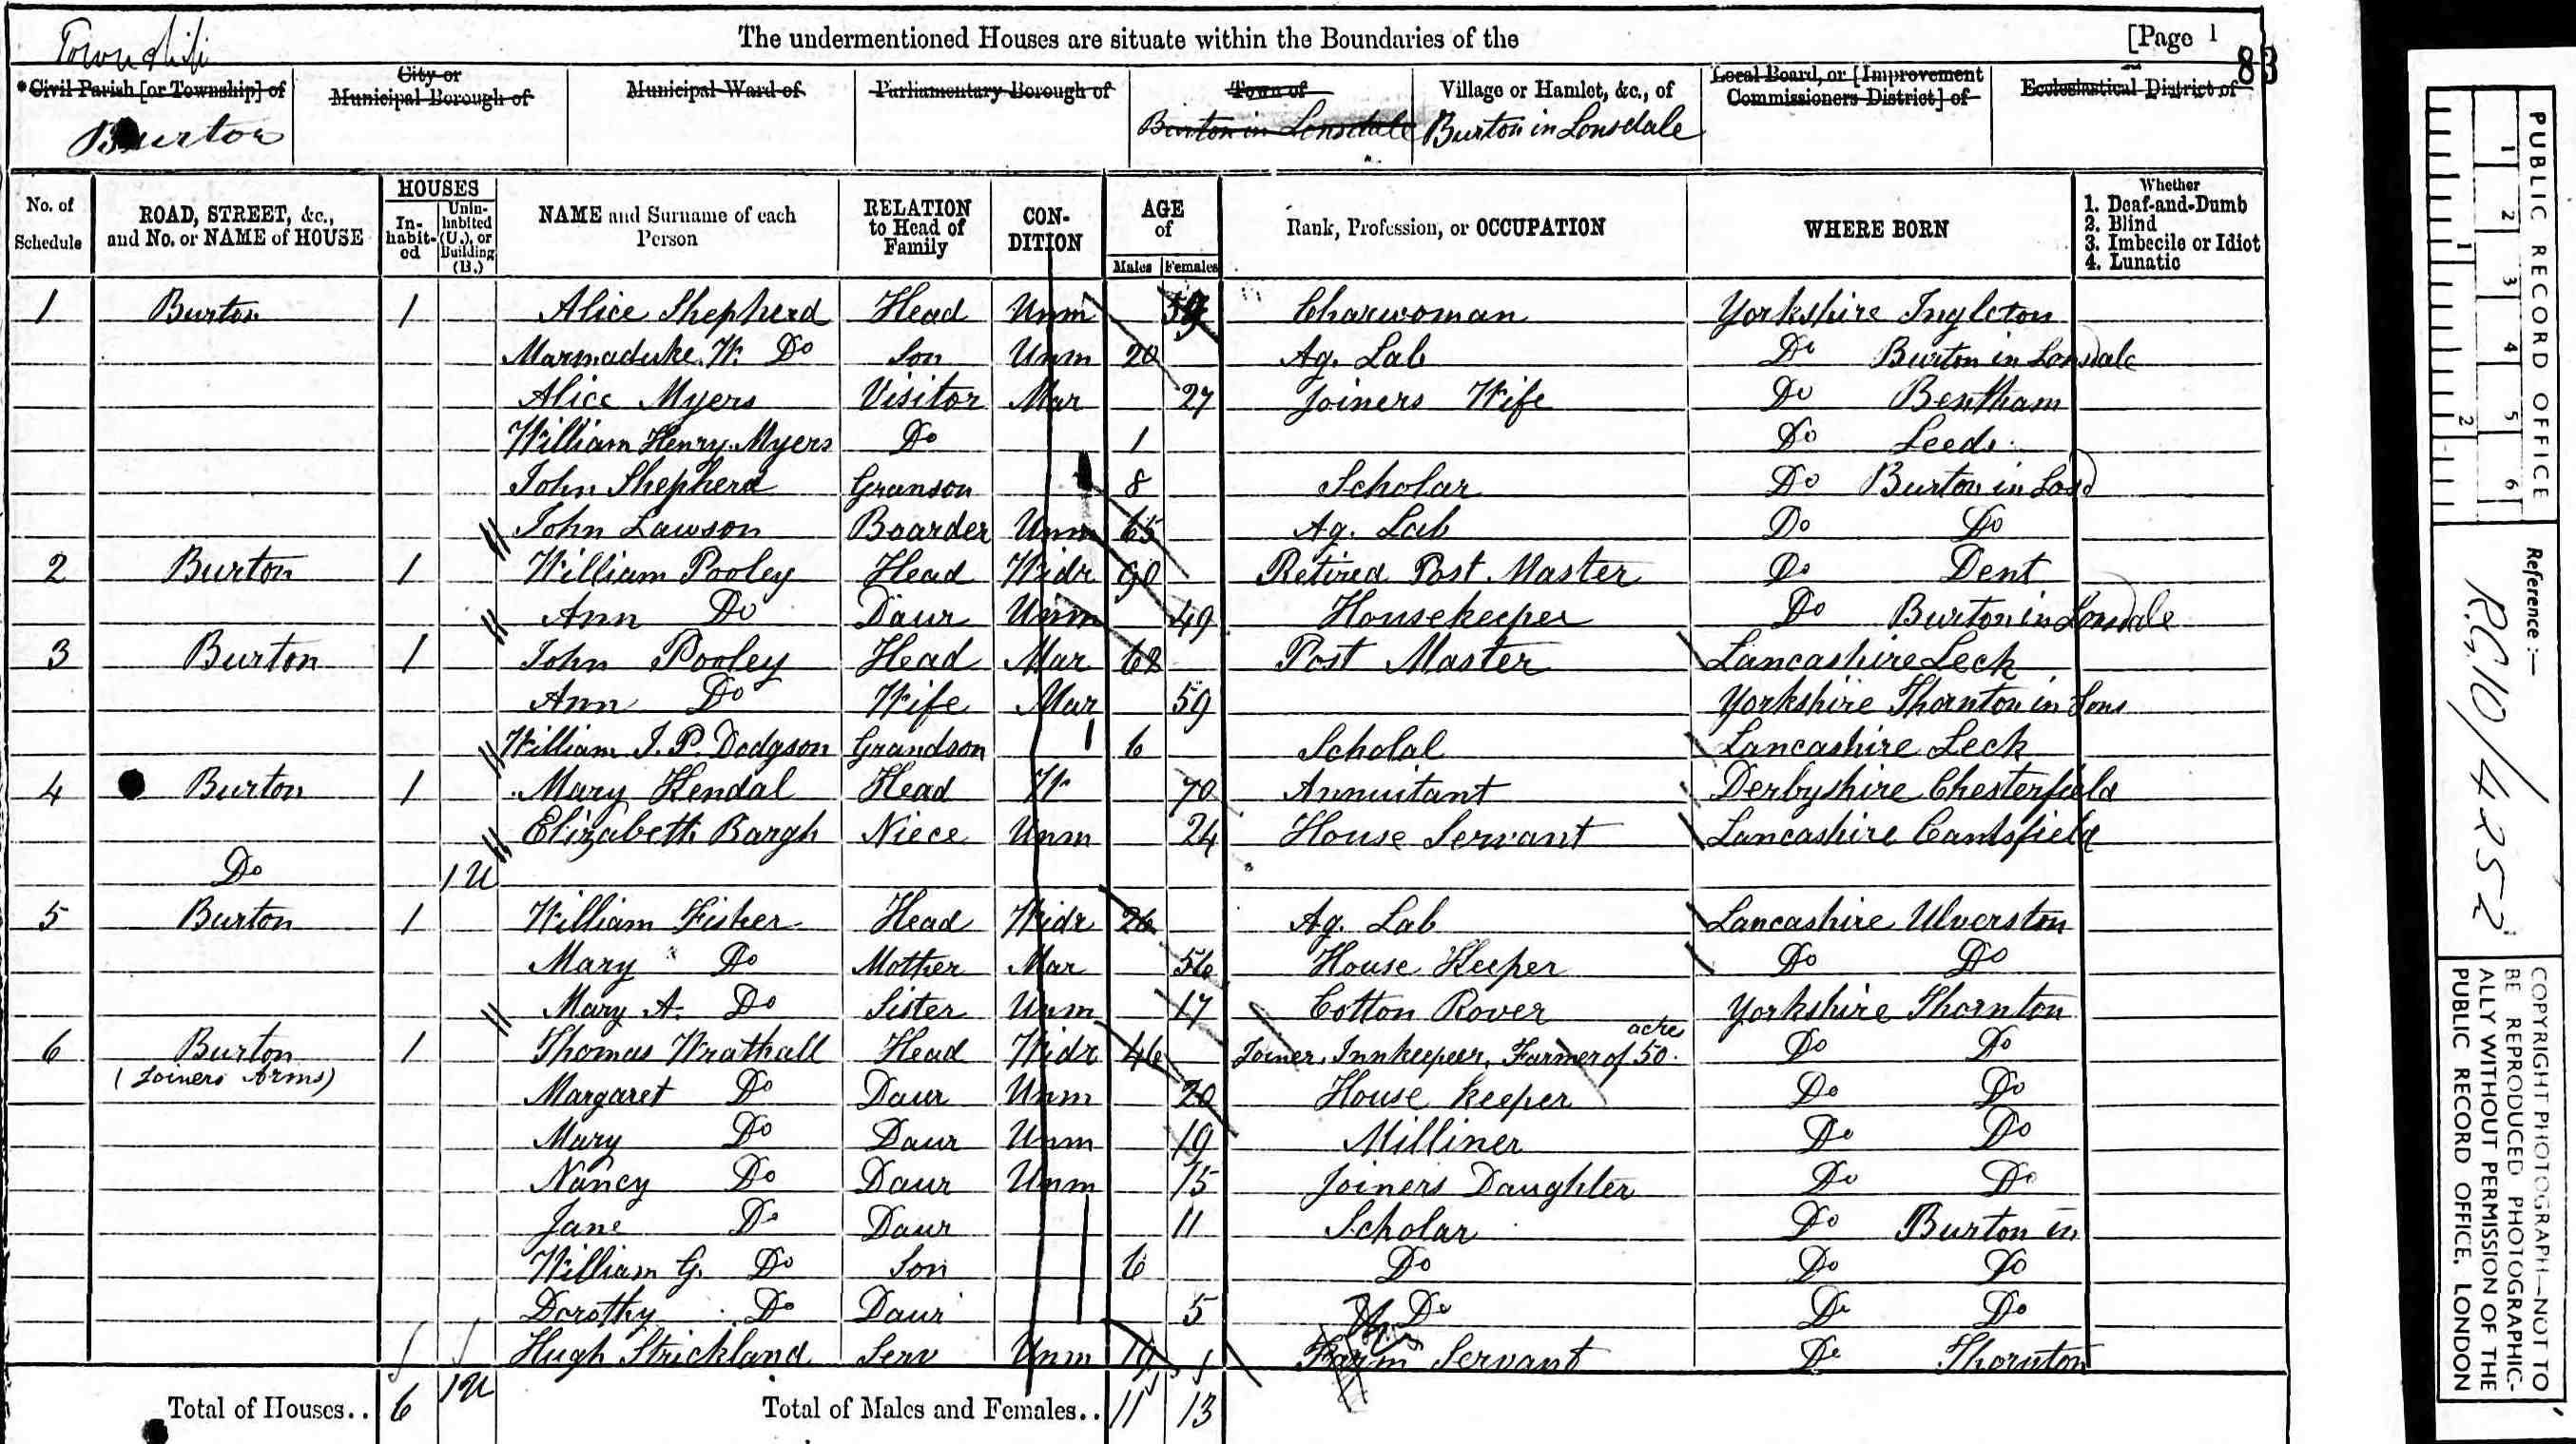 Township
The undermentioned Houses are situate within the Boundaries of the
[Page 1
83
*Civil Parish [or Township] of
City or Municipal Borough of
Municipal Ward of
Parliamentary Borough of
Town of
Village or Hamlet, &c., of
Local Board, or [Improvement Commissioners District] of
Ecclesiastical District of
Burton
Burton in Lonsdale
Burton in Lonsdale
No. of Schedule
ROAD, STREET, &c., and No. or NAME of HOUSE
HOUSES
In-habit-ed
Unin-habited (U.), or Building (B.)
NAME and Surname of each Person
RELATION to Head of Family
CON-DITION
AGE of
Males
Females
Rank, Profession, or OCCUPATION
WHERE BORN
Whether
1. Deaf-and-Dumb
2. Blind
3. Imbecile or Idiot
4. Lunatic
1 Burton 1 Alice Shepherd Head Unm Charwoman Yorkshire Ingleton
Marmaduke W. Do Son Unm 20 Ag. Lab Do Burton in Lonsdale
Alice Myers Visitor Mar 27 Joiners Wife Do Bentham
William Henry Myers Do 1 Do Leeds
John Shepherd Granson 8 Scholar Do Burton in Lonsd
John Lawson Boarder Unm 65 Ag. Lab Do Do
2 Burton 1 William Pooley Head Widr 90 Retired Post Master Do Dent
Ann Do Daur Unm 49 Housekeeper Do Burton in Lonsdale
3 Burton 1 John Pooley Head Mar 62 Post Master Lancashire Leck
Ann Do Wife Mar 59 Yorkshire Thornton in Lons
William J. P. Dodgson Grandson 6 Scholal Lancashire Leck
4 Burton 1 Mary Kendal Head W 70 Annuitant Derbyshire Chesterfield
Elizabeth Bargh Niece Unm 24 House Servant Lancashire Cantsfield
Do 1 U
5 Burton 1 William Fisher Head Widr 26 Ag. Lab Lancashire Ulverston
Mary Do Mother Mar 56 House Keeper Do Do
Mary A. Do Sister Unm 17 Cotton Rover Yorkshire Thornton
6 Burton 1 Thomas Wrathall Head Widr 46 Joiner, Innkeeper, Farmer of 50 acres Do Do
(Joiners Arms)
Margaret Do Daur Unm 20 House keeper Do Do
Mary Do Daur Unm 19 Milliner Do Do
Nancy Do Daur Unm 15 Joiners Daughter Do Do
Jane Do Daur 11 Scholar Do Burton in
William G. Do Son 6 Do Do Do
Dorothy Do Daur 5 Do Do Do
Hugh Strickland Serv Unm 19 Farm Servant Do Thornton
Total of Houses.. 6 1U Total of Males and Females.. 11 13
PUBLIC RECORD OFFICE
1 2 3 4 5 6
1 2
Reference :-
R.G. 10/4252
COPYRIGHT PHOTOGRAPH—NOT TO
BE REPRODUCED PHOTOGRAPHIC-
ALLY WITHOUT PERMISSION OF THE
PUBLIC RECORD OFFICE, LONDON